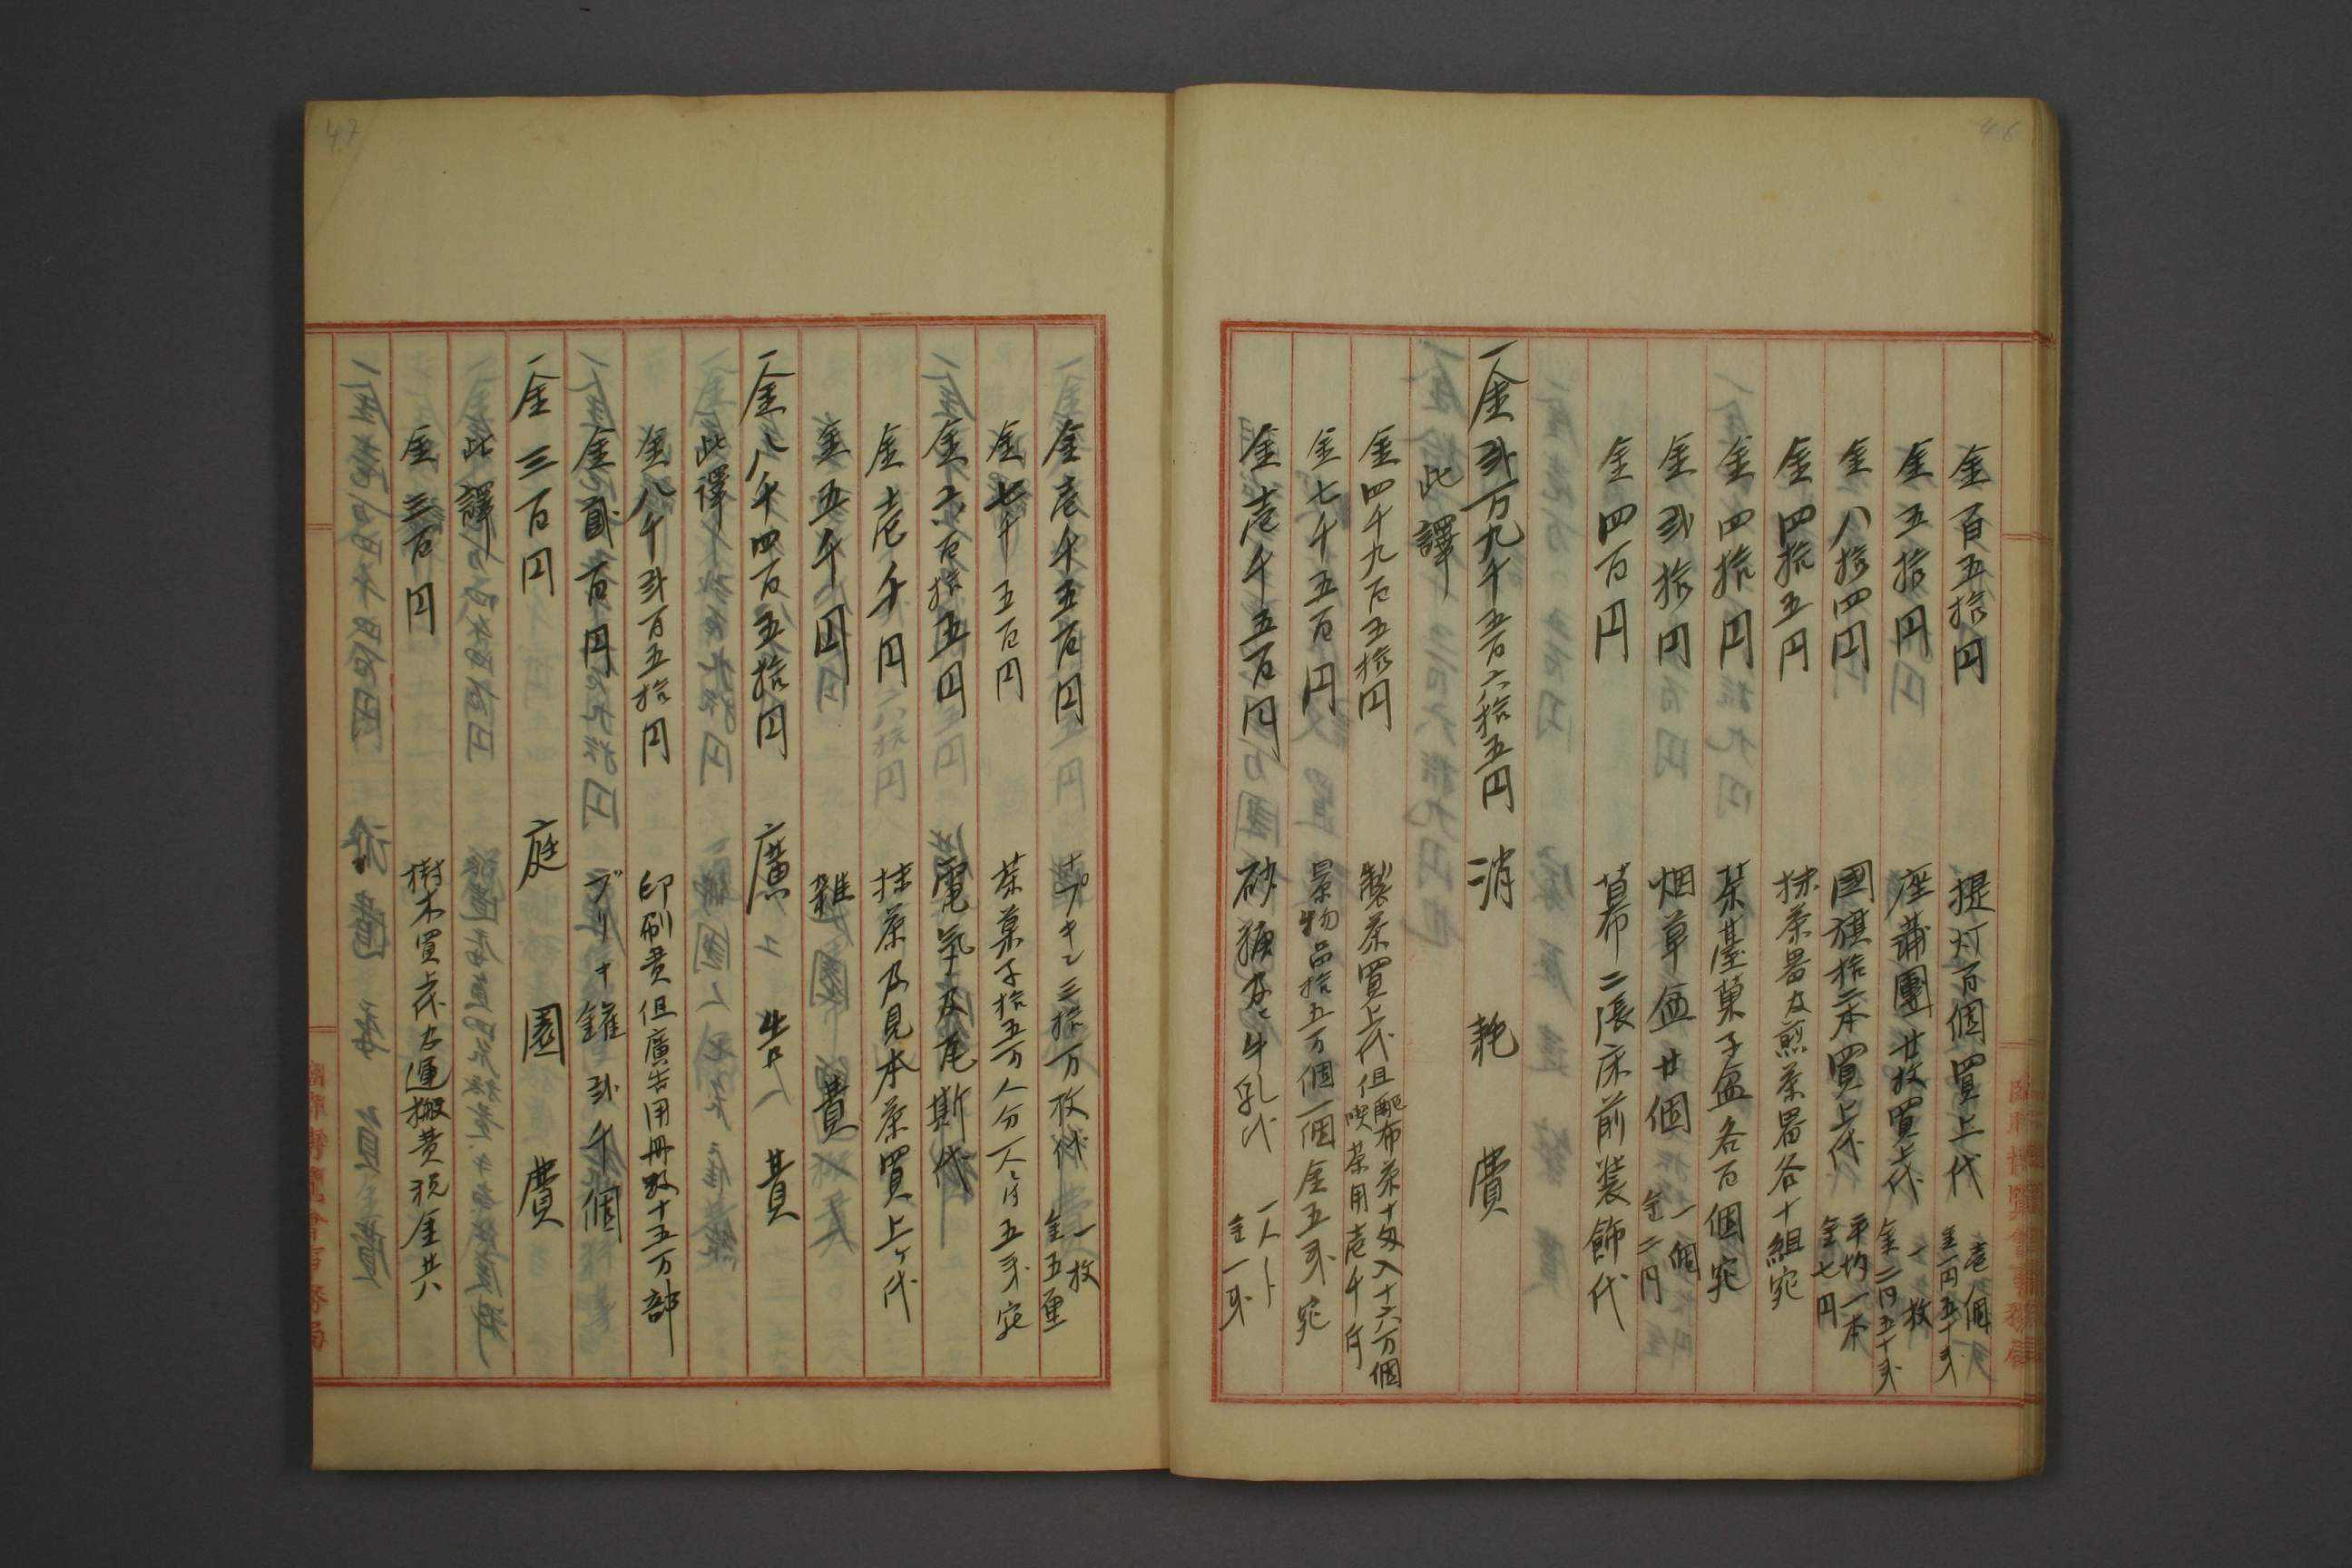 46
金百五拾円 提灯百個買上代 壱個金一円五十戔
金五拾円 座蒲團廿枚買上代 一枚金二円五十戔
金八拾四円 國旗拾二本買上代 平均一本金七円
金四拾五円 抹茶器及煎茶器各十組宛
金四拾円 茶臺菓子盆各百個宛
金弐拾円 烟草盆廿個 一個金二円
金四百円 幕二張床前装飾代
一金弐万九千五百六拾五円 消耗費
此譯
金四千九百五拾円 製茶買上代但配布茶十匁入十六万個喫茶用壱千斤
金七千五百円 景物品拾五万個一個金五戔宛
金壱千五百円 砂糖及牛乳代 一人ト金一戔
47
金壱千五百円 ナプキン三拾万枚代 一枚金五厘
金七千五百円 茶菓子拾五万人分一人ニ付五戔宛
金六百拾五円 電氣及瓦斯代
金壱千円 抹茶及見本茶買上ケ代
金五千円 雑費
一金八千四百五拾円 廣告費
此譯
金八千弐百五拾円 印刷費但廣告用冊数十五万部
金貳百円 ブリキ鑵弐千個
一金三百円 庭園費
此譯
金三百円 樹木買上代及運搬費税金共
臨時博覧會事務局